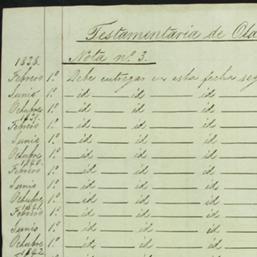 Testamentaria de Ola
Nota nº 3.
1838.
Febrero 1º Debe entregar en esta fecha seg
Junio 1º — id — id — id —
Octubre 1º — id — id — id —
1839.
Febrero 1º — id — id — id —
Junio 1º — id — id — id —
Octubre 1º — id — id — id —
1840.
Febrero 1º — id — id — id —
Junio 1º — id — id — id —
Octubre 1º — id — id — id —
1841.
Febrero 1º — id — id — id —
Junio 1º — id — id — id —
Octubre 1º — id — id — id —
1842.